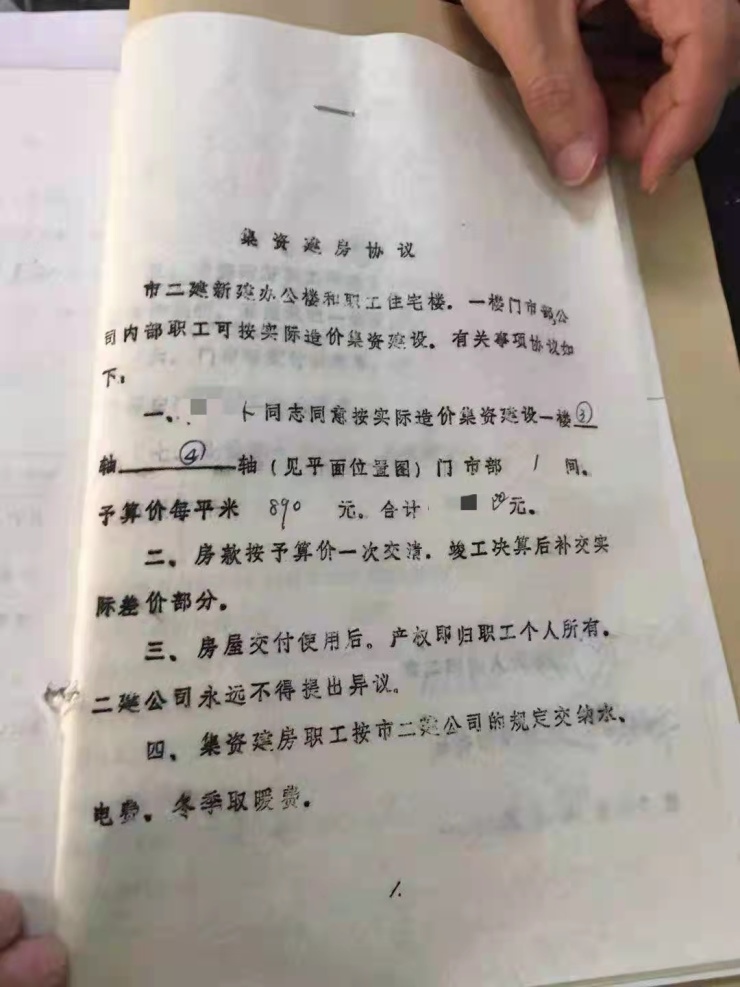 集资建房协议
市二建新建办公楼和职工住宅楼. 一楼门市部公
司内部职工可按实际造价集资建设。有关事项协议如
下:
一、 同志同意按实际造价集资建设一楼③
轴 ④ 轴(见平面位置图)门市部 1 间。
予算价每平米 890 元。合计 元。
二、房款按予算价一次交清. 竣工决算后补交实
际差价部分。
三、房屋交付使用后。产权即归职工个人所有。
二建公司永远不得提出异议。
四、集资建房职工按市二建公司的规定交纳水、
电费。冬季取暖费。
1.